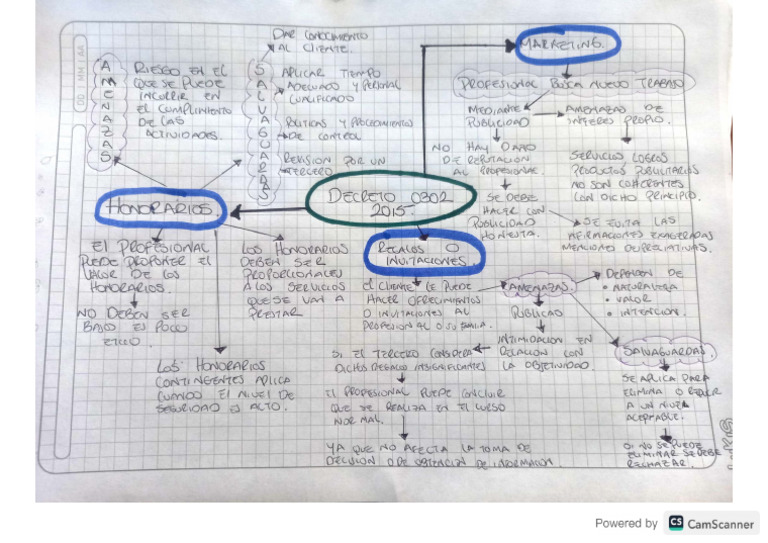 DD MM AA
AMENAZAS
RIESGO EN EL
QUE SE PUEDE
INCURRIR EN
EL CUMPLIMIENTO
DE LAS
ACTIVIDADES.
SALVAGUARDAS
DAR CONOCIMIENTO
AL CLIENTE.
APLICAR TIEMPO
ADECUADO Y PERSONAL
CUALIFICADO
POLITICAS Y PROCEDIMIENTOS
DE CONTROL
REVISION POR UN
TERCERO
MARKETING.
PROFESIONAL BUSCA NUEVO TRABAJO
MEDIANTE
PUBLICIDAD
AMENAZAS DE
INTERES PROPIO.
NO HAY DAÑO
DE REPUTACION
AL PROFESIONAL.
SERVICIOS LOGROS
PRODUCTOS PUBLICITARIOS
NO SON COHERENTES
CON DICHO PRINCIPIO.
SE DEBE
HACER CON
PUBLICIDAD
HONESTA.
SE EVITA LAS
AFIRMACIONES EXAGERADAS
MENCIONES DESPRECIATIVAS.
DECRETO 0302
2015
HONORARIOS.
EL PROFESIONAL
PUEDE PROPONER EL
VALOR DE LOS
HONORARIOS.
NO DEBEN SER
BAJOS ES POCO
ETICO.
LOS HONORARIOS
DEBEN SER
PROPORCIONALES
A LOS SERVICIOS
QUE SE VAN A
PRESTAR
LOS HONORARIOS
CONTINGENTES APLICA
CUANDO EL NIVEL DE
SEGURIDAD ES ALTO.
REGALOS O
INVITACIONES.
EL CLIENTE LE PUEDE
HACER OFRECIMIENTOS
O INVITACIONES AL
PROFESIONAL O SU FAMILIA.
AMENAZAS
DEPENDEN DE
• NATURALEZA
• VALOR
• INTENCION.
PUBLICAO
INTIMIDACION EN
RELACION CON
LA OBJETIVIDAD.
SI EL TERCERO CONSIDERA
DICHOS REGALOS INSIGNIFICANTES
EL PROFESIONAL PUEDE CONCLUIR
QUE SE REALIZA EN EL CURSO
NORMAL.
YA QUE NO AFECTA LA TOMA DE
DECISION O DE OBTENCION DE INFORMACION.
SALVAGUARDAS.
SE APLICA PARA
ELIMINA O REDUCIR
A UN NIVEL
ACEPTABLE.
SI NO SE PUEDE
ELIMINAR SE DEBE
RECHAZAR.
Powered by CS CamScanner